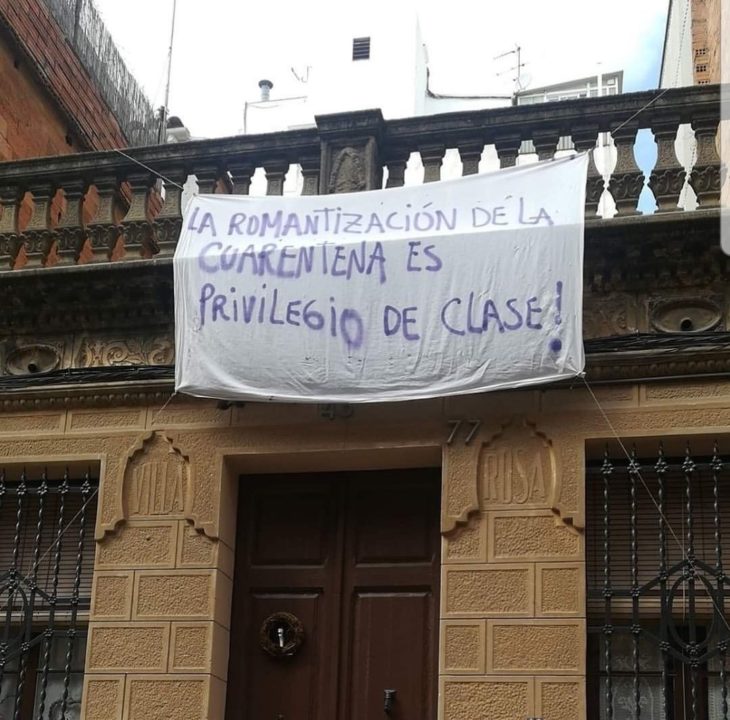 LA ROMANTIZACIÓN DE LA
CUARENTENA ES
PRIVILEGIO DE CLASE!
77
VILLA
ROSA